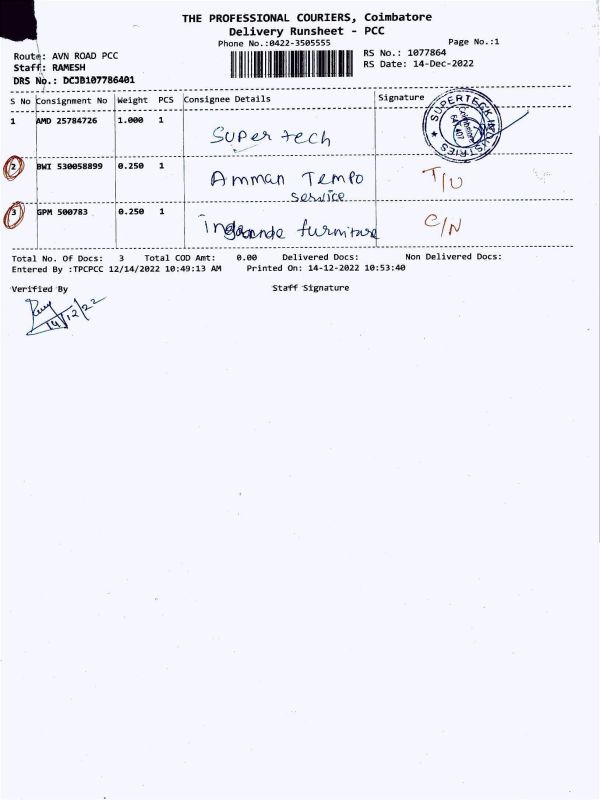 THE PROFESSIONAL COURIERS, Coimbatore
Delivery Runsheet - PCC
Phone No.:0422-3505555 Page No.:1
Route: AVN ROAD PCC RS No.: 1077864
Staff: RAMESH RS Date: 14-Dec-2022
DRS No.: DCJB107786401
S No Consignment No Weight PCS Consignee Details Signature
1 AMD 25784726 1.000 1 Super tech
SUPERTECH INDUSTRIES
2 BWI 530058899 0.250 1 Amman Tempo T/U
service
3 GPM 500783 0.250 1 furniture C/N
Total No. Of Docs: 3 Total COD Amt: 0.00 Delivered Docs: Non Delivered Docs:
Entered By :TPCPCC 12/14/2022 10:49:13 AM Printed On: 14-12-2022 10:53:40
Verified By Staff Signature
14/12/22